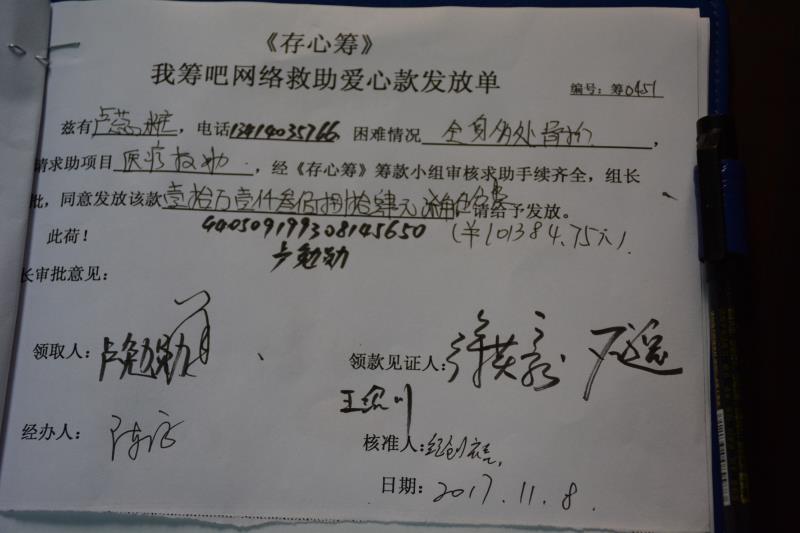 《存心筹》
我筹吧网络救助爱心款发放单
编号：筹0451
兹有卢蕊雅，电话13414035766 困难情况 全身多处骨折，
请求助项目 医疗救助，经《存心筹》筹款小组审核求助手续齐全，组长
批，同意发放该款壹拾万壹仟叁佰捌拾肆元柒角伍分，请给予发放。
此荷！ 440509199308145650 (￥101384.75元).
卢勉勋
长审批意见：
领取人：卢勉勋 领款见证人：
经办人：
核准人：
日期：2017.11.8.